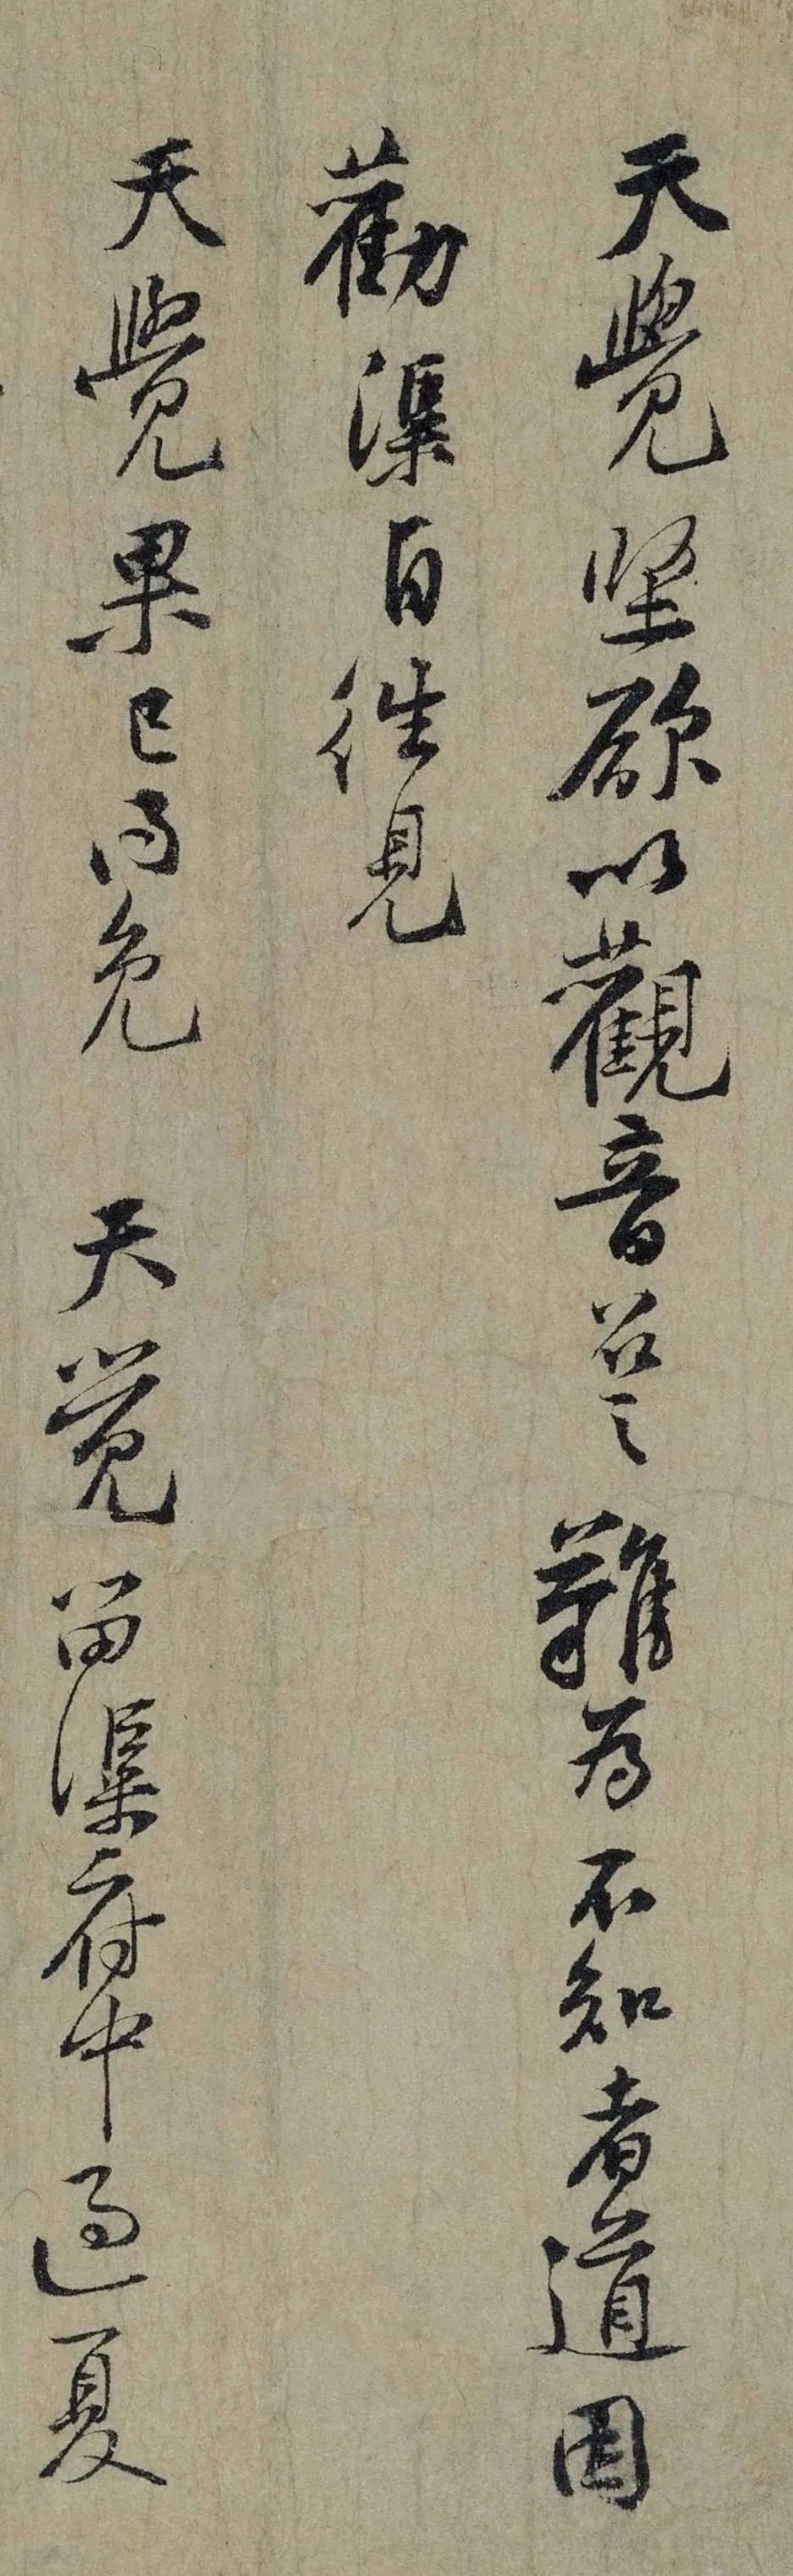 天覺堅欲以觀音召之難為不知者道因
勸渠自往見
天覺果已得免天覺留渠府中過夏